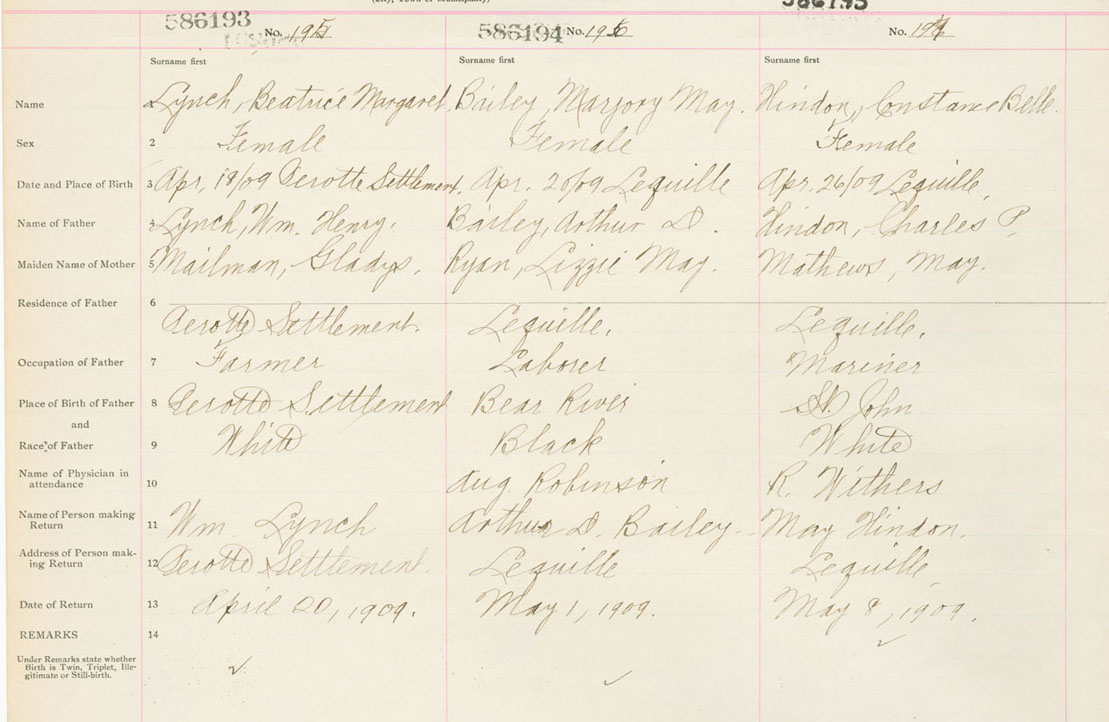 (City, Town or Municipality)
586193 No. 195 586194 No. 196 586195 No. 197
Surname first Surname first Surname first
Name Lynch, Beatrice Margaret. Bailey, Marjory May. Hindon, Constance Belle.
Sex 2 Female Female Female
Date and Place of Birth 3 Apr. 18/09 Perotte Settlement. Apr. 20/09 Lequille Apr. 26/09 Lequille.
Name of Father 4 Lynch, Wm. Henry. Bailey, Arthur D. Hindon, Charles P.
Maiden Name of Mother 5 Mailman, Gladys. Ryan, Lizzie May. Mathews, May.
Residence of Father 6 Perotte Settlement. Lequille. Lequille.
Occupation of Father 7 Farmer Laborer Mariner
Place of Birth of Father 8 Perotte Settlement Bear River St. John.
and
Race of Father 9 White Black White
Name of Physician in
attendance 10 Aug. Robinson R. Withers
Name of Person making
Return 11 Wm. Lynch Arthur D. Bailey May Hindon.
Address of Person mak-
ing Return 12 Perotte Settlement. Lequille Lequille
Date of Return 13 April 20, 1909. May 1, 1909. May 8, 1909.
REMARKS 14
Under Remarks state whether
Birth is Twin, Triplet, Ille-
gitimate or Still-birth.